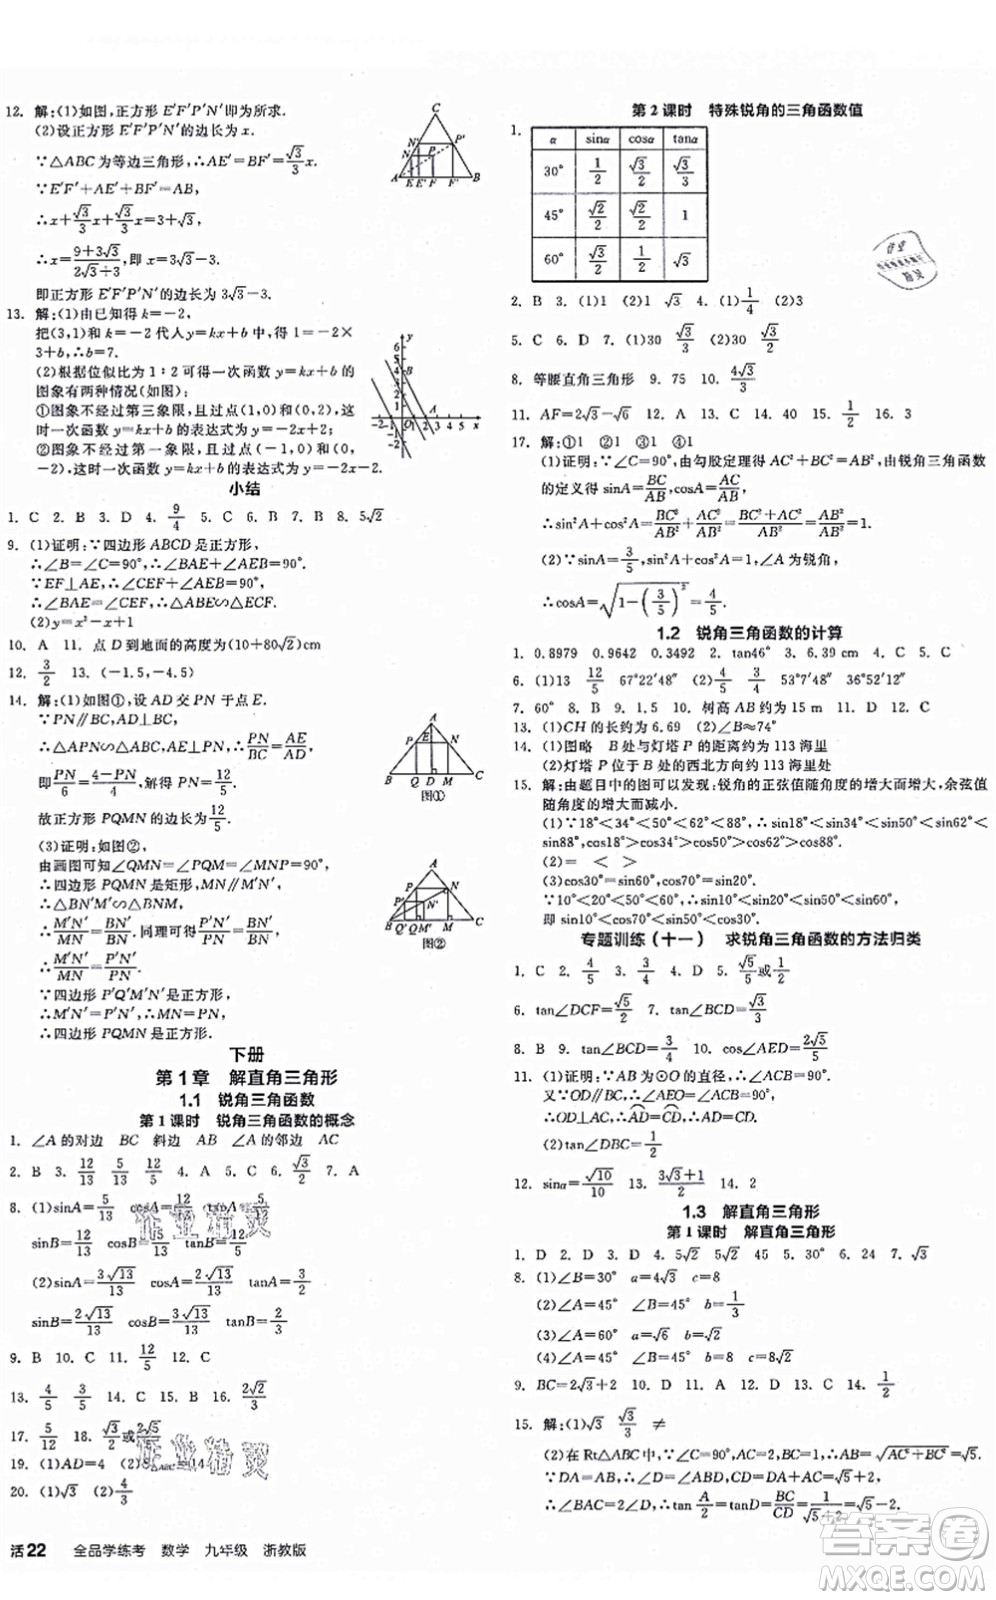 12. 解:(1)如图,正方形 E′F′P′N′即为所求.
(2)设正方形 E′F′P′N′的边长为 x.
∵△ABC 为等边三角形,∴AE′=BF′=√3/3 x.
∵E′F′+AE′+BF′=AB,
∴x+√3/3 x+√3/3 x=3+√3,
∴x=(9+3√3)/(2√3+3),即 x=3√3-3.
即正方形 E′F′P′N′的边长为 3√3-3.
13. 解:(1)由已知得 k=-2,
把(3,1)和 k=-2 代人 y=kx+b 中,得 1=-2×
3+b,∴b=7.
(2)根据位似比为 1:2 可得一次函数 y=kx+b 的
图象有两种情况(如图):
①图象不经过第三象限,且过点(1,0)和(0,2),这
时一次函数 y=kx+b 的表达式为 y=-2x+2;
②图象不经过第一象限,且过点(-1,0)和(0,
-2),这时一次函数 y=kx+b 的表达式为 y=-2x-2.
小结
1. C 2. B 3. D 4. 9/4 5. C 6. C 7. B 8. 5√2
9. (1)证明:∵四边形 ABCD 是正方形,
∴∠B=∠C=90°,∴∠BAE+∠AEB=90°.
∵EF⊥AE,∴∠CEF+∠AEB=90°,
∴∠BAE=∠CEF,∴△ABE∽△ECF.
(2)y=x²-x+1
10. A 11. 点 D 到地面的高度为(10+80√2)cm
12. 3/2 13. (-1.5,-4.5)
14. 解:(1)如图①,设 AD 交 PN 于点 E.
∵PN∥BC,AD⊥BC,
∴△APN∽△ABC,∴PN/BC=AE/AD,
即 PN/6=(4-PN)/4,∴PN=12/5.
故正方形 PQMN 的边长为 12/5.
(3)证明:如图②,
由画图可知∠QMN=∠PQM=∠MNP=90°,
∴四边形 PQMN 是矩形,MN∥M′N′,
∴△BN′M′∽△BNM,
∴M′N′/MN=BN′/BN.同理可得 P′N′/PN=BN′/BN,
∴M′N′/MN=P′N′/PN.
∵四边形 P′Q′M′N′是正方形,
∴M′N′=P′N′,∴MN=PN,
∴四边形 PQMN 是正方形.
图①
图②
下册
第 1 章 解直角三角形
1.1 锐角三角函数
第 1 课时 锐角三角函数的概念
1. ∠A 的对边 BC 斜边 AB ∠A 的邻边 AC
2. B 3. 12/13 5/13 12/5 4. A 5. C 6. √3/2 7. A
8. (1)sinA=5/13 cosA=12/13 tanA=5/12
sinB=12/13 cosB=5/13 tanB=12/5
(2)sinA=3√13/13 cosA=2√13/13 tanA=3/2
sinB=2√13/13 cosB=3√13/13 tanB=2/3
9. B 10. C 11. 12/5 12. C
13. 4/5 4/5 14. C 15. A 16. 2√2/3
17. 5/12 18. √3/2 或 2√5/5
19. (1)AD=4 (2)S△ABC=14
20. (1)√3 (2)4/3
第 2 课时 特殊锐角的三角函数值
1.
α sinα cosα tanα
30° 1/2 √3/2 √3/3
45° √2/2 √2/2 1
60° √3/2 1/2 √3
2. B 3. (1)1 √3 4. (1)1/4 (2)3
5. C 6. D 7. (1)30 √3/3 (2)30 √3/2
8. 等腰直角三角形 9. 75 10. 4√3/3
11. AF=2√3-√6 12. A 13. C 14. 40 15. 1/2 16. 3
17. 解:①1 ②1 ③1 ④1
(1)证明:∵∠C=90°,由勾股定理得 AC²+BC²=AB²,由锐角三角函数
的定义得 sinA=BC/AB,cosA=AC/AB,
∴sin²A+cos²A=BC²/AB²+AC²/AB²=(BC²+AC²)/AB²=AB²/AB²=1.
(2)∵sinA=3/5,sin²A+cos²A=1,∠A 为锐角,
∴cosA=√(1-(3/5)²)=4/5.
1.2 锐角三角函数的计算
1. 0.8979 0.9642 0.3492 2. tan46° 3. 6.39 cm 4. C 5. C
6. (1)13 12/5 67°22′48″ (2)4/3 4/5 36°52′12″
7. 60° 8. B 9. 1.5 10. 树高 AB 约为 15 m 11. A 12. A
13. (1)CH 的长约为 6.69 (2)∠B≈74°
14. (1)图略 B 处与灯塔 P 的距离约为 113 海里
(2)灯塔 P 位于 B 处的西北方向约为 113 海里处
15. 解:由题目中的图可以发现:锐角的正弦值随角度的增大而增大,余弦值
随角度的增大而减小.
(1)∵18°<34°<50°<62°<88°,∴sin18°<sin34°<sin50°<sin62°<
sin88°,cos18°>cos34°>cos50°>cos62°>cos88°.
(2)= < >
(3)cos30°=sin60°,cos70°=sin20°.
∵10°<20°<50°<60°,∴sin10°<sin20°<sin50°<sin60°,
即 sin10°<cos70°<sin50°<cos30°.
专题训练(十一) 求锐角三角函数的方法归类
1. C 2. 4/5 3. 3/4 4. D 5. √5/5 或 1/2
6. tan∠DCF=√5/2 7. tan∠BCD=√3/3
8. B 9. tan∠BCD=3/4 10. cos∠AED=2√5/5
11. (1)证明:∵AB 为⊙O 的直径,∴∠ACB=90°.
又∵OD∥BC,∴∠AEO=∠ACB=90°,
∴OD⊥AC,∴AD=CD,∴AD=CD.
(2)tan∠DBC=1/2
12. sinα=√10/10 13. (3√3+1)/2 14. 2
1.3 解直角三角形
第 1 课时 解直角三角形
1. D 2. D 3. D 4. 5√2 5√2 45 5. 30° 6. 24 7. √3
8. (1)∠B=30° a=4√3 c=8
(2)∠A=45° ∠B=45° b=1/3
(3)∠A=60° a=√6 b=√2
(4)∠A=45° b=8 c=8√2
9. BC=2√3+2 10. D 11. A 12. D 13. C 14. 1/2
15. 解:(1)√3 √3/3 ≠
(2)在 Rt△ABC 中,∵∠C=90°,AC=2,BC=1,∴AB=√(AC²+BC²)=√5.
∵DA=AB,∴DA=AB=√5,∴∠D=∠ABD,
∴∠BAC=2∠D,∴tan A/2=tanD=BC/CD=1/(√5+2)=√5-2.
活22 全品学练考 数学 九年级 浙教版
作业精灵
作业精灵
答案圈
MXQE.COM